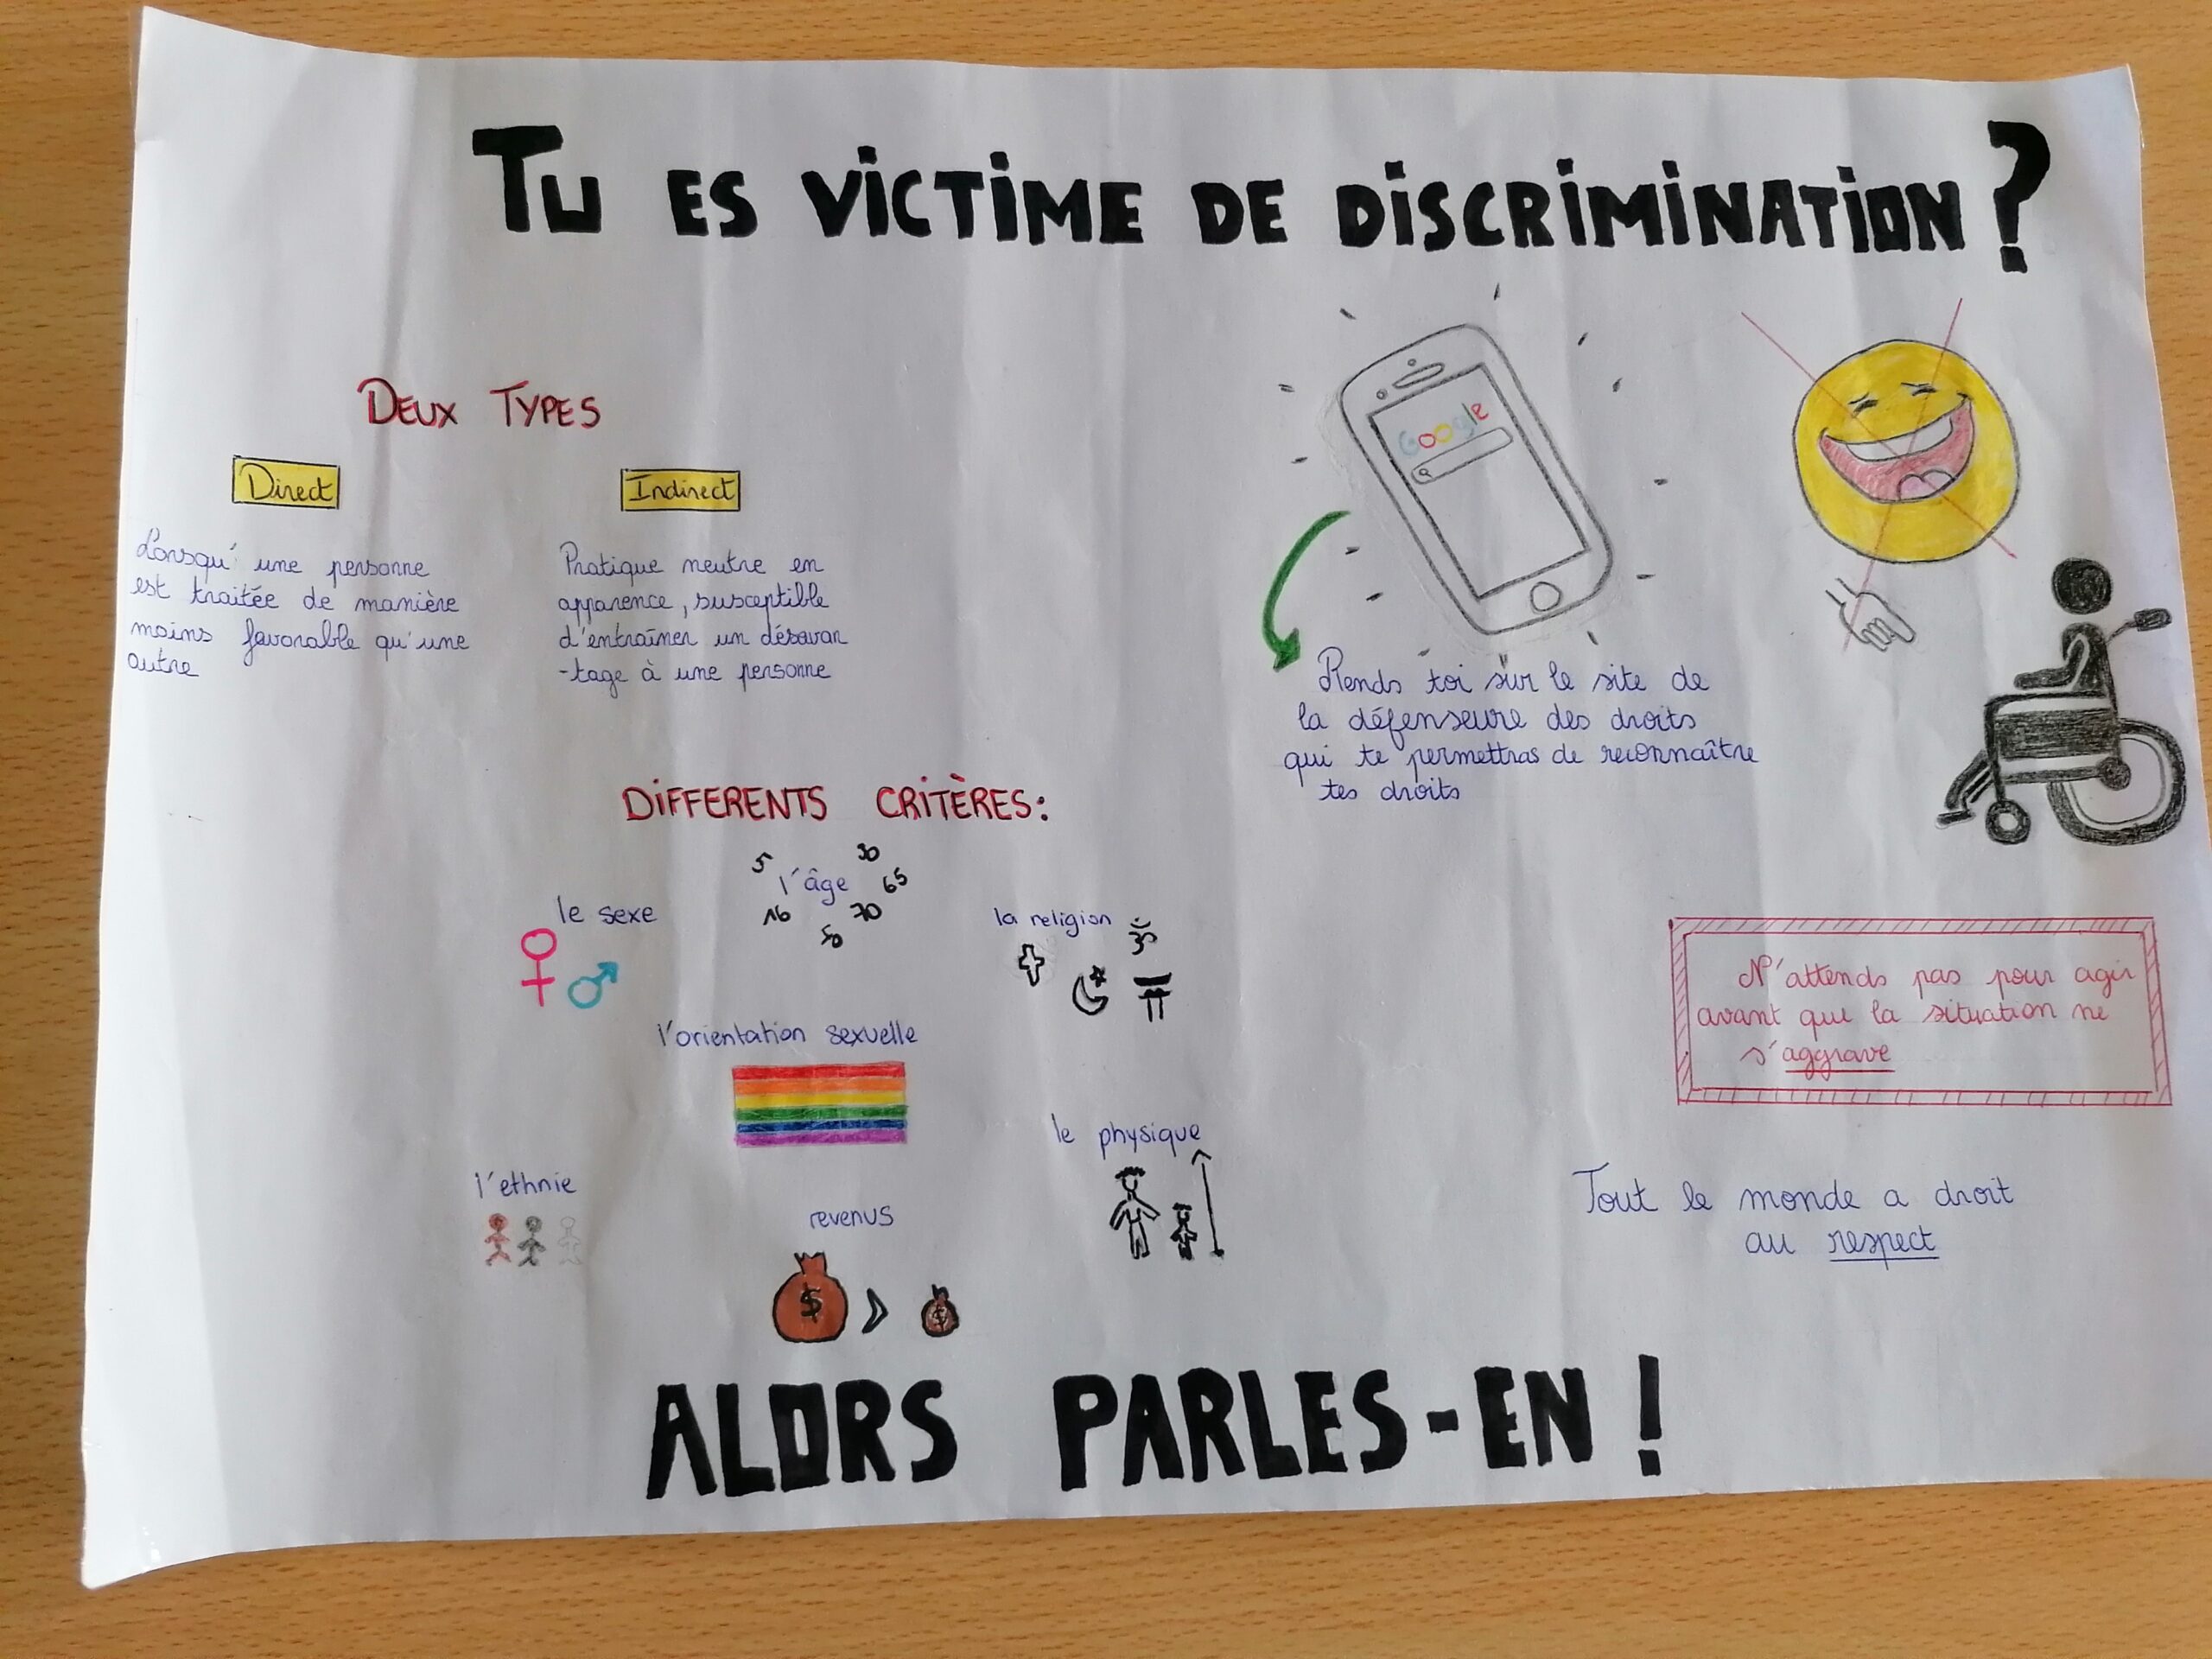 TU ES VICTIME DE DISCRIMINATION ?
DEUX TYPES
Direct
Lorsqu' une personne
est traitée de manière
moins favorable qu'une
autre
Indirect
Pratique neutre en
apparence, susceptible
d'entraîner un désavan
-tage à une personne
Google
Rends toi sur le site de
la défenseure des droits
qui te permettras de reconnaître
tes droits
DIFFERENTS CRITÈRES:
le sexe
l'âge
5
30
65
16
70
50
la religion
ॐ
l'orientation sexuelle
l'ethnie
revenus
$ > $
le physique
N'attends pas pour agir
avant que la situation ne
s'aggrave
Tout le monde a droit
au respect
ALORS PARLES-EN !